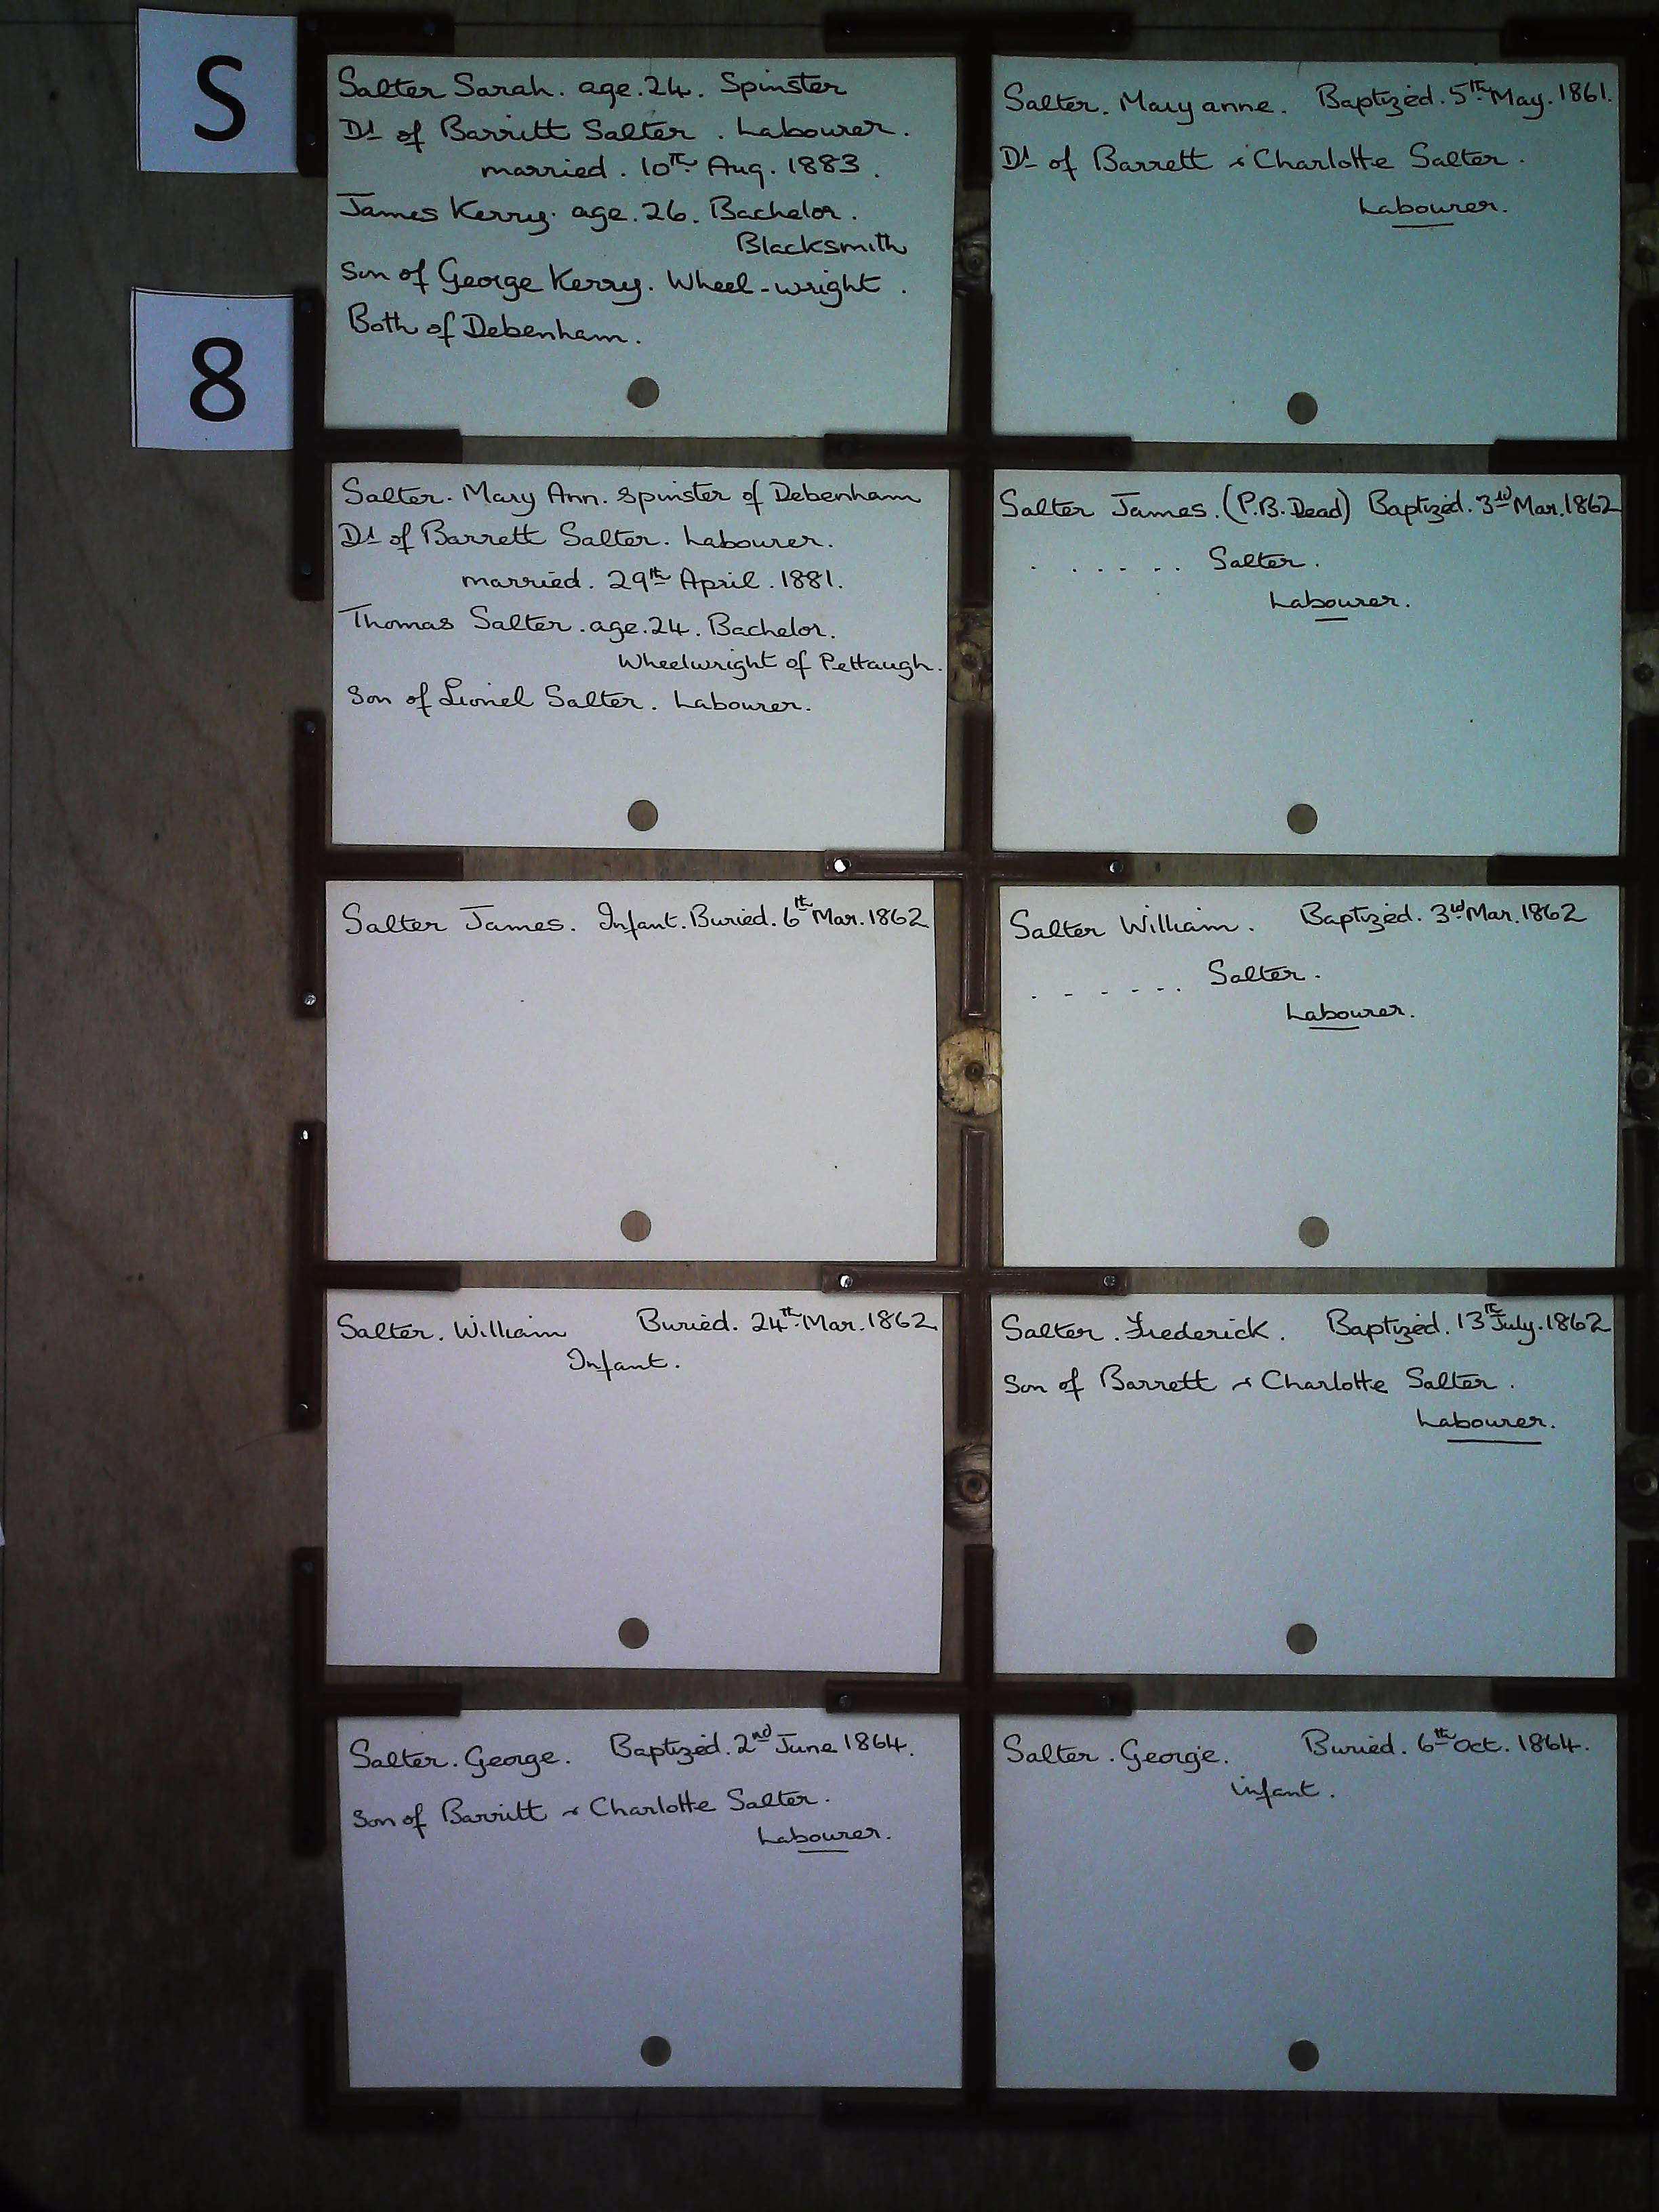 S
8
Salter Sarah. age. 24. Spinster
Dt of Barritt Salter. Labourer.
married. 10th Aug. 1883.
James Kerry. age. 26. Bachelor.
Blacksmith
Son of George Kerry. Wheel-wright.
Both of Debenham.
Salter. Mary anne. Baptized. 5th May. 1861.
Dt of Barrett & Charlotte Salter.
Labourer.
Salter. Mary Ann. Spinster of Debenham
Dt of Barrett Salter. Labourer.
married. 29th April. 1881.
Thomas Salter. age. 24. Bachelor.
Wheelwright of Pettaugh.
Son of Lionel Salter. Labourer.
Salter James. (P.B. Dead) Baptized. 3rd Mar. 1862
. . . . . . Salter.
Labourer.
Salter James. Infant. Buried. 6th Mar. 1862
Salter William. Baptized. 3rd Mar. 1862
. - - - - . Salter.
Labourer.
Salter. William Buried. 24th Mar. 1862
Infant.
Salter. Frederick. Baptized. 13th July. 1862
Son of Barrett & Charlotte Salter.
Labourer.
Salter. George. Baptized. 2nd June 1864.
Son of Barritt & Charlotte Salter.
Labourer.
Salter. George. Buried. 6th Oct. 1864.
infant.